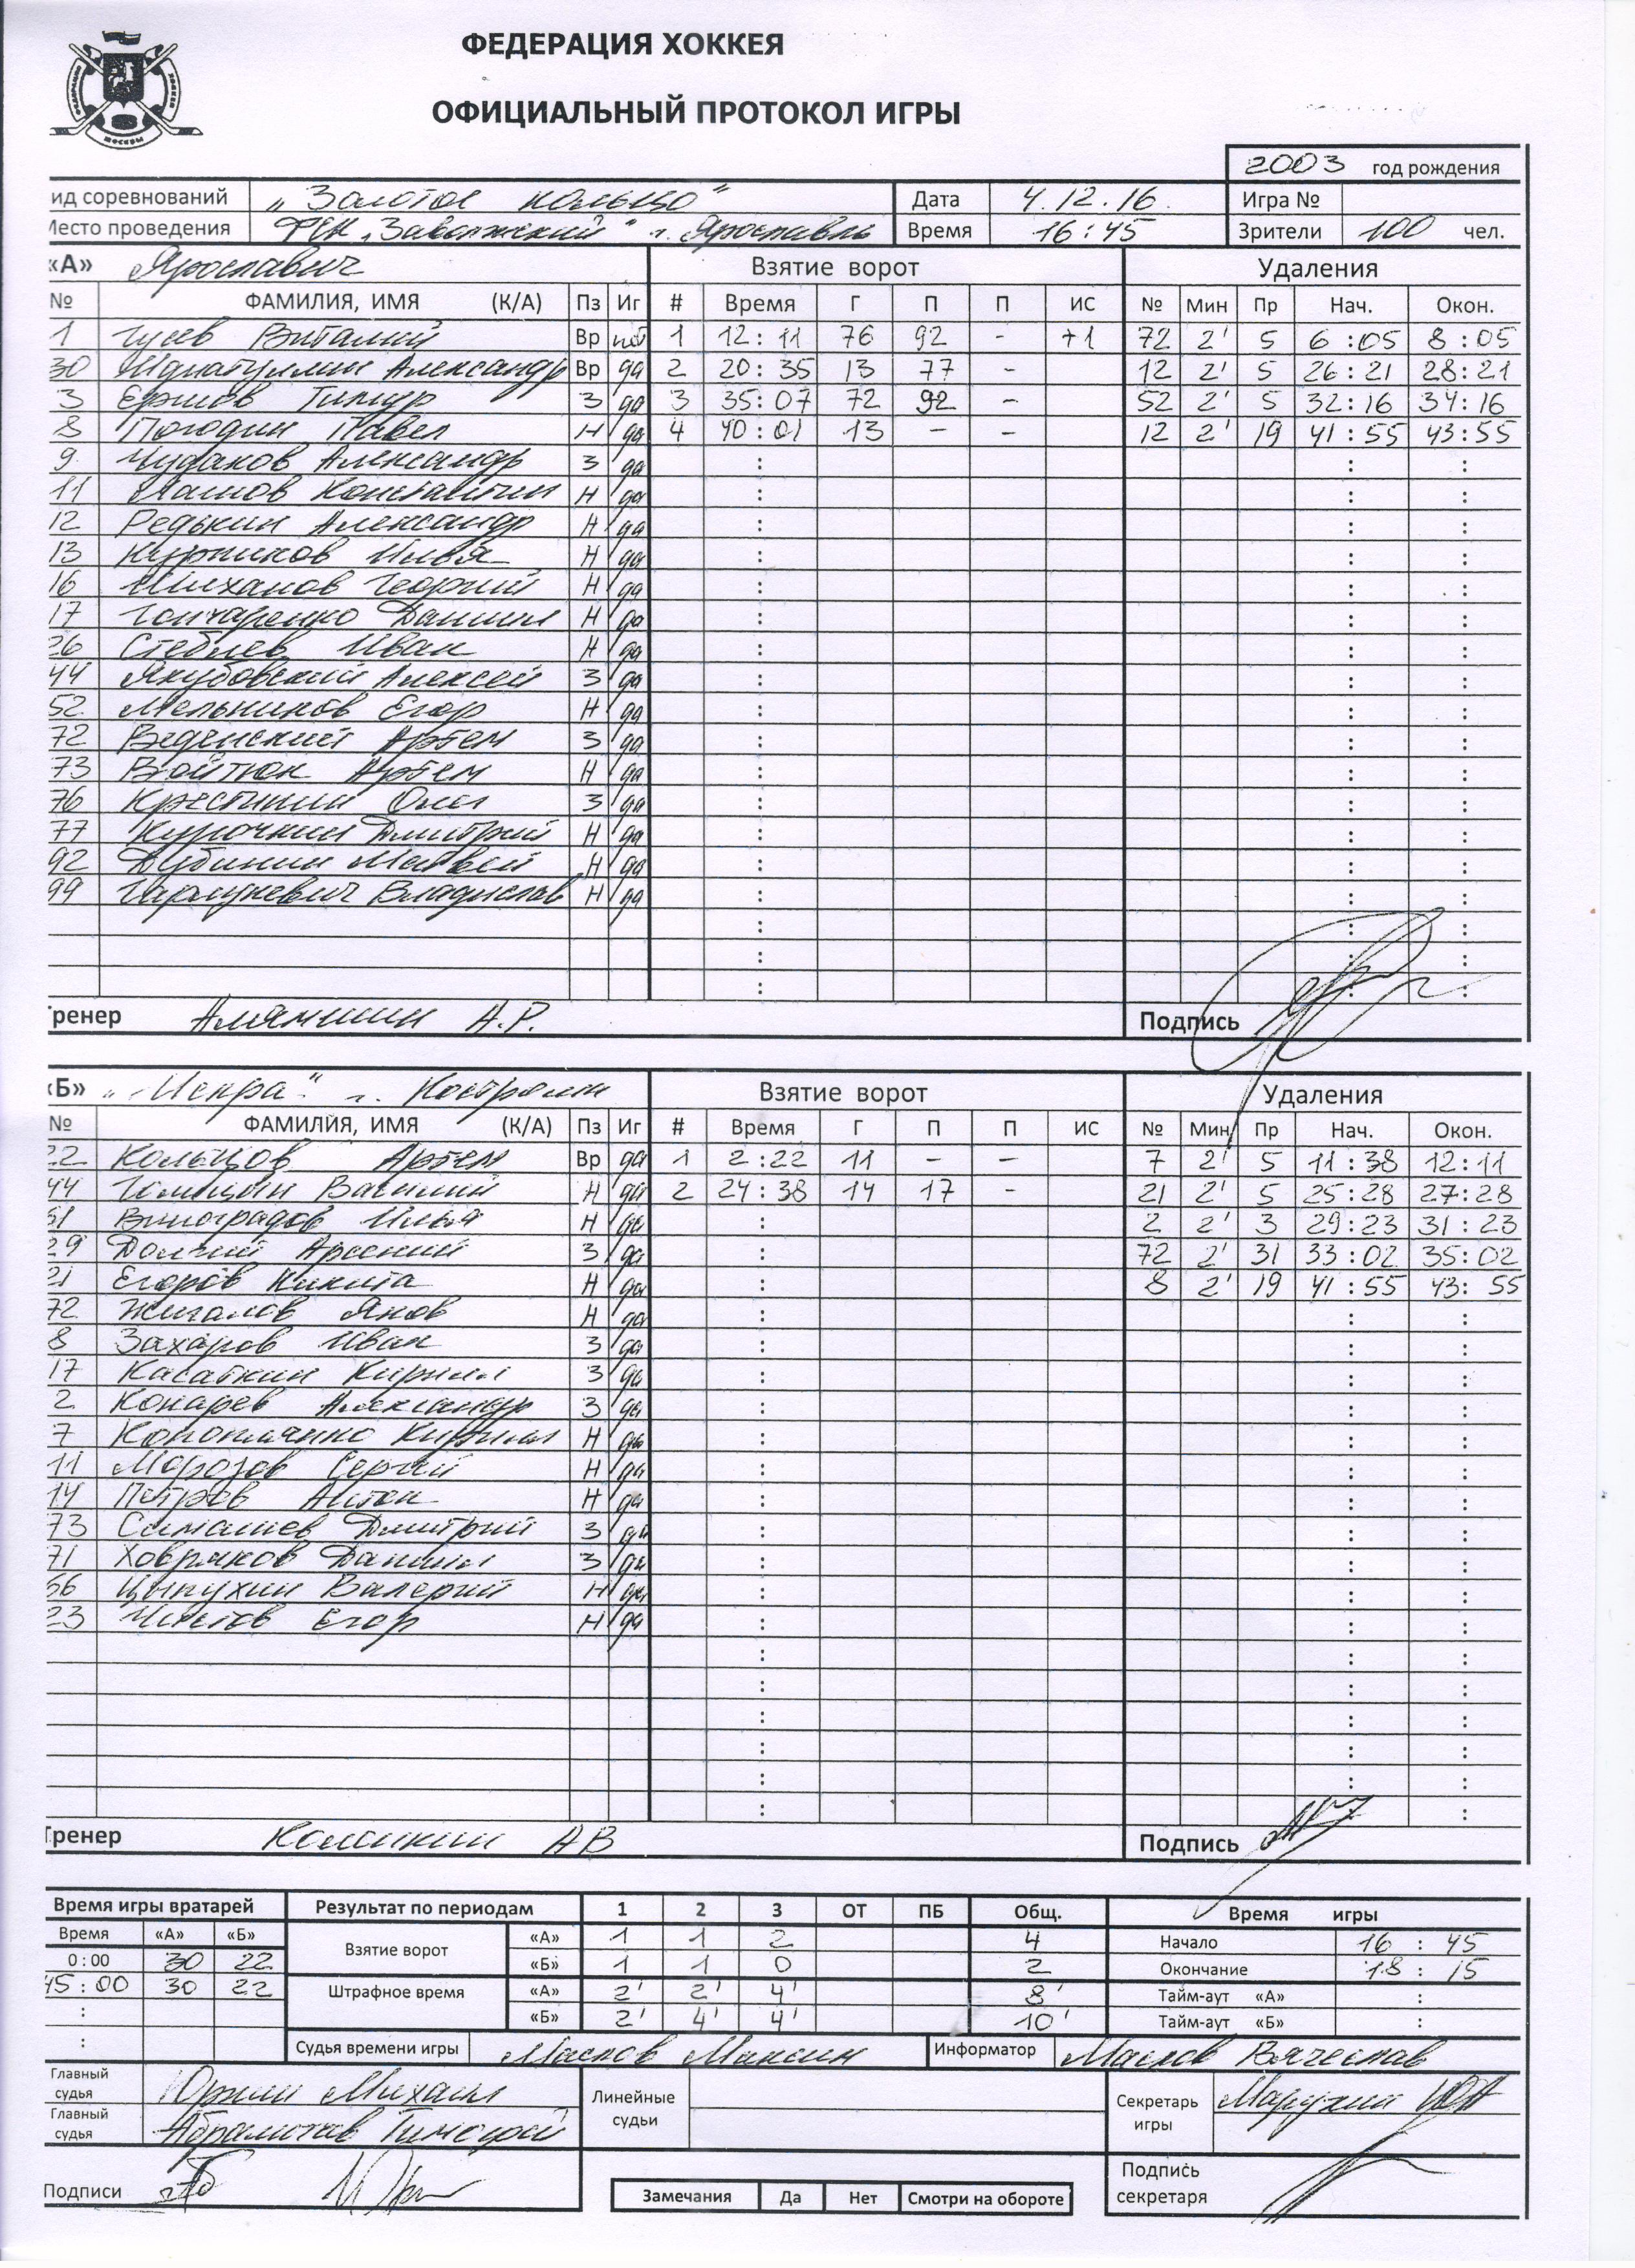 ФЕДЕРАЦИЯ ХОККЕЯ
ОФИЦИАЛЬНЫЙ ПРОТОКОЛ ИГРЫ
МОСКВЫ
2003 год рождения
ид соревнований „Золотое кольцо" Дата 4.12.16. Игра №
Место проведения ФСК „Заволжский" г. Ярославль Время 16:45 Зрители 100 чел.
«А» Ярославич Взятие ворот Удаления
№ ФАМИЛИЯ, ИМЯ (К/А) Пз Иг # Время Г П П ИС № Мин Пр Нач. Окон.
1 Гусев Виталий Вр нет 1 12:11 76 92 - +1 72 2' 5 6:05 8:05
30 Александр Вр да 2 20:35 13 77 - 12 2' 5 26:21 28:21
3 Ершов Тимур З да 3 35:07 72 92 - 52 2' 5 32:16 34:16
8 Погодин Павел Н да 4 40:01 13 - - 12 2' 19 41:55 43:55
9 Чудаков Александр З да
11 Константин Н да
12 Редькин Александр Н да
13 Илья Н да
16 Георгий Н да
17 Гончаренко Даниил Н да
26 Стеблев Иван Н да
44 Якубовский Алексей З да
52 Мельников Егор Н да
72 Веденский Артем З да
73 Войтюк Артем Н да
76 Крестинин Олег З да
77 Курочкин Дмитрий Н да
92 Дубинин Матвей Н да
99 Владислав Н да
тренер Алямшин А.Р. Подпись
«Б» „Искра" г. Кострома Взятие ворот Удаления
№ ФАМИЛИЯ, ИМЯ (К/А) Пз Иг # Время Г П П ИС № Мин Пр Нач. Окон.
22 Кольцов Артем Вр да 1 2:22 11 - - 7 2' 5 11:38 12:11
44 Голицын Василий Н да 2 24:38 14 17 - 21 2' 5 25:28 27:28
51 Виноградов Илья Н да 2 2' 3 29:23 31:23
29 Долгий Арсений З да 72 2' 31 33:02 35:02
21 Егоров Никита Н да 8 2' 19 41:55 43:55
72 Жигалов Яков Н да
8 Захаров Иван З да
17 Касаткин Кирилл З да
2 Конарев Александр З да
7 Кирилл Н да
11 Морозов Сергей Н да
14 Петров Антон Н да
73 Симашев Дмитрий З да
71 Ховряков Даниил З да
66 Цыпухин Валерий Н да
23 Егор Н да
Тренер АВ Подпись
Время игры вратарей Результат по периодам 1 2 3 ОТ ПБ Общ. Время игры
Время «А» «Б» Взятие ворот «А» 1 1 2 4 Начало 16:45
0:00 30 22 «Б» 1 1 0 2 Окончание 18:15
45:00 30 22 Штрафное время «А» 2' 2' 4' 8' Тайм-аут «А» :
: «Б» 2' 4' 4' 10' Тайм-аут «Б» :
: Судья времени игры Маслов Максим Информатор Маслов Вячеслав
Главный судья Юркин Михаил Линейные судьи Секретарь игры
Главный судья Тимофей
Подписи Замечания Да Нет Смотри на обороте Подпись секретаря